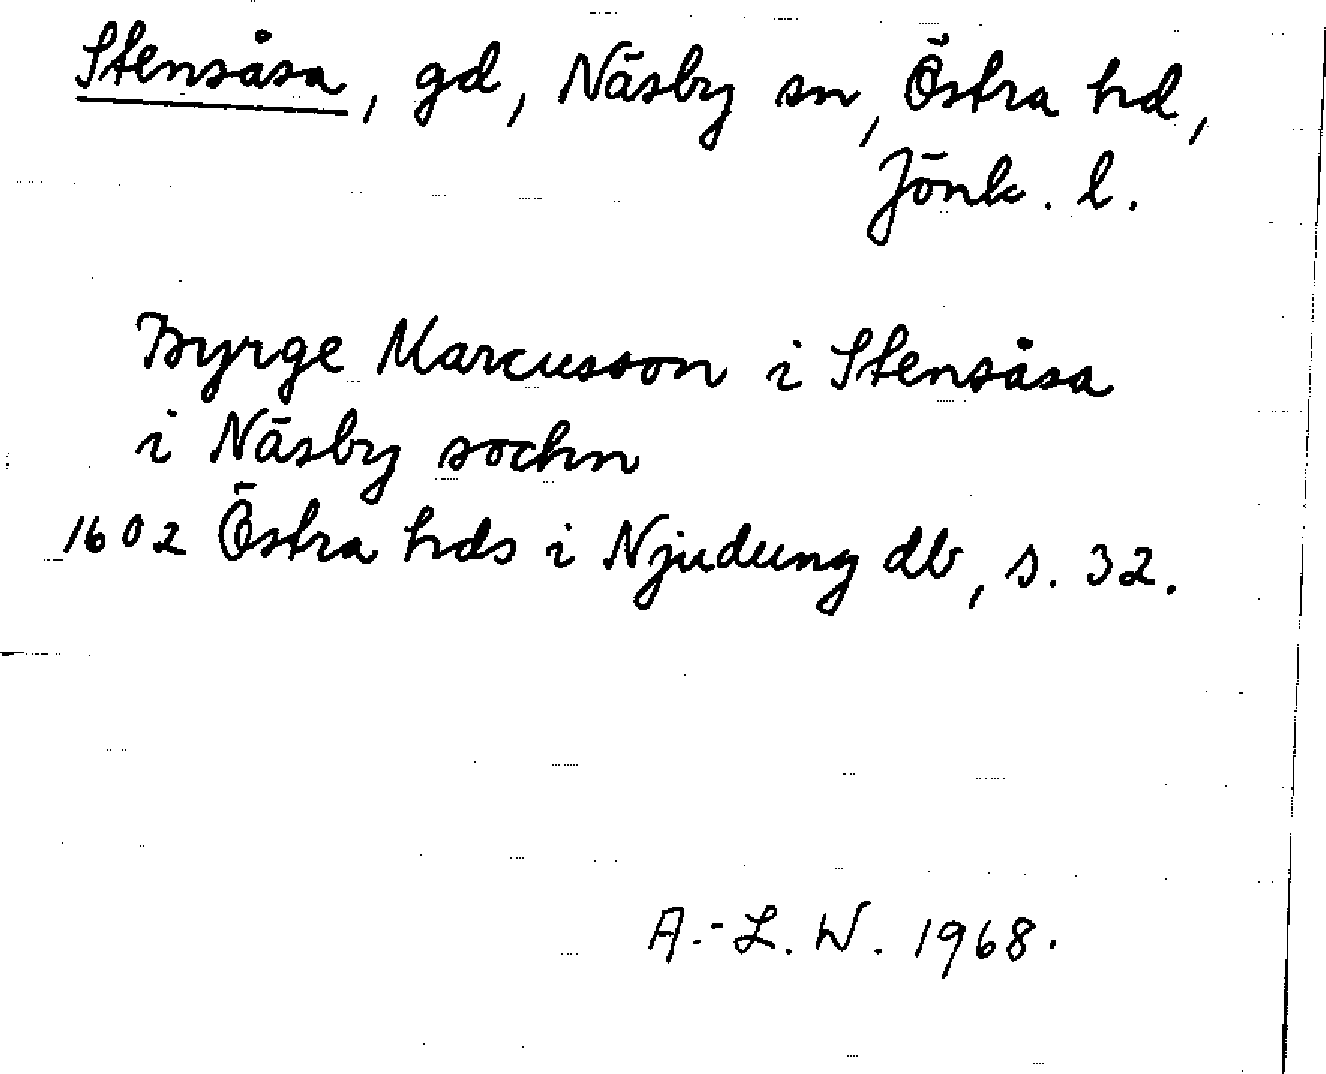 Stensåsa, gd, Näsby sn, Östra hd,
Jönk. l.
Byrge Marcusson i Stensåsa
i Näsby sochn
1602 Östra hds i Njudung db, s. 32.
A.-L. W. 1968.